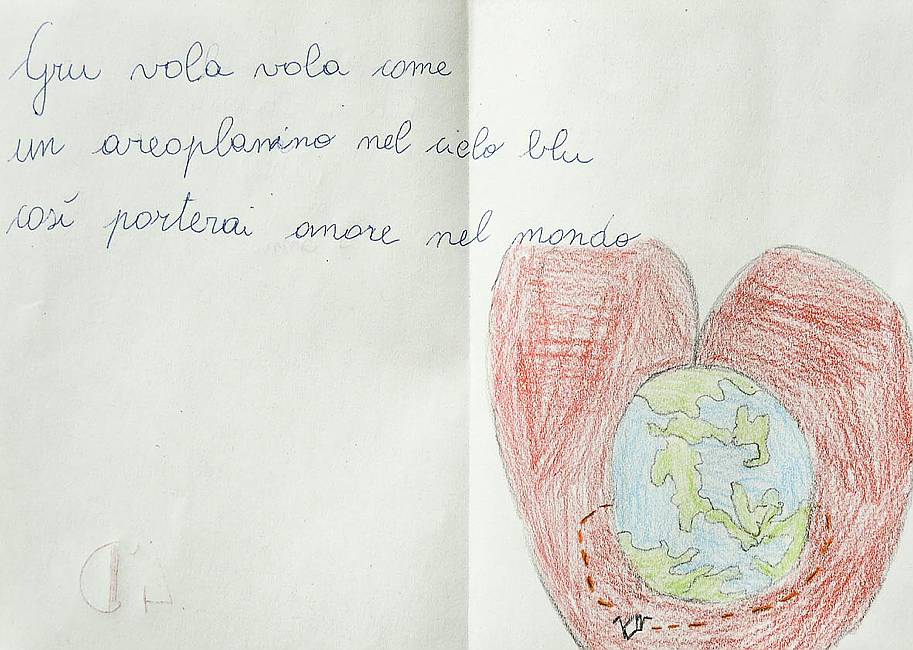 Gru vola vola come
un areoplanino nel cielo blu
così porterai amore nel mondo